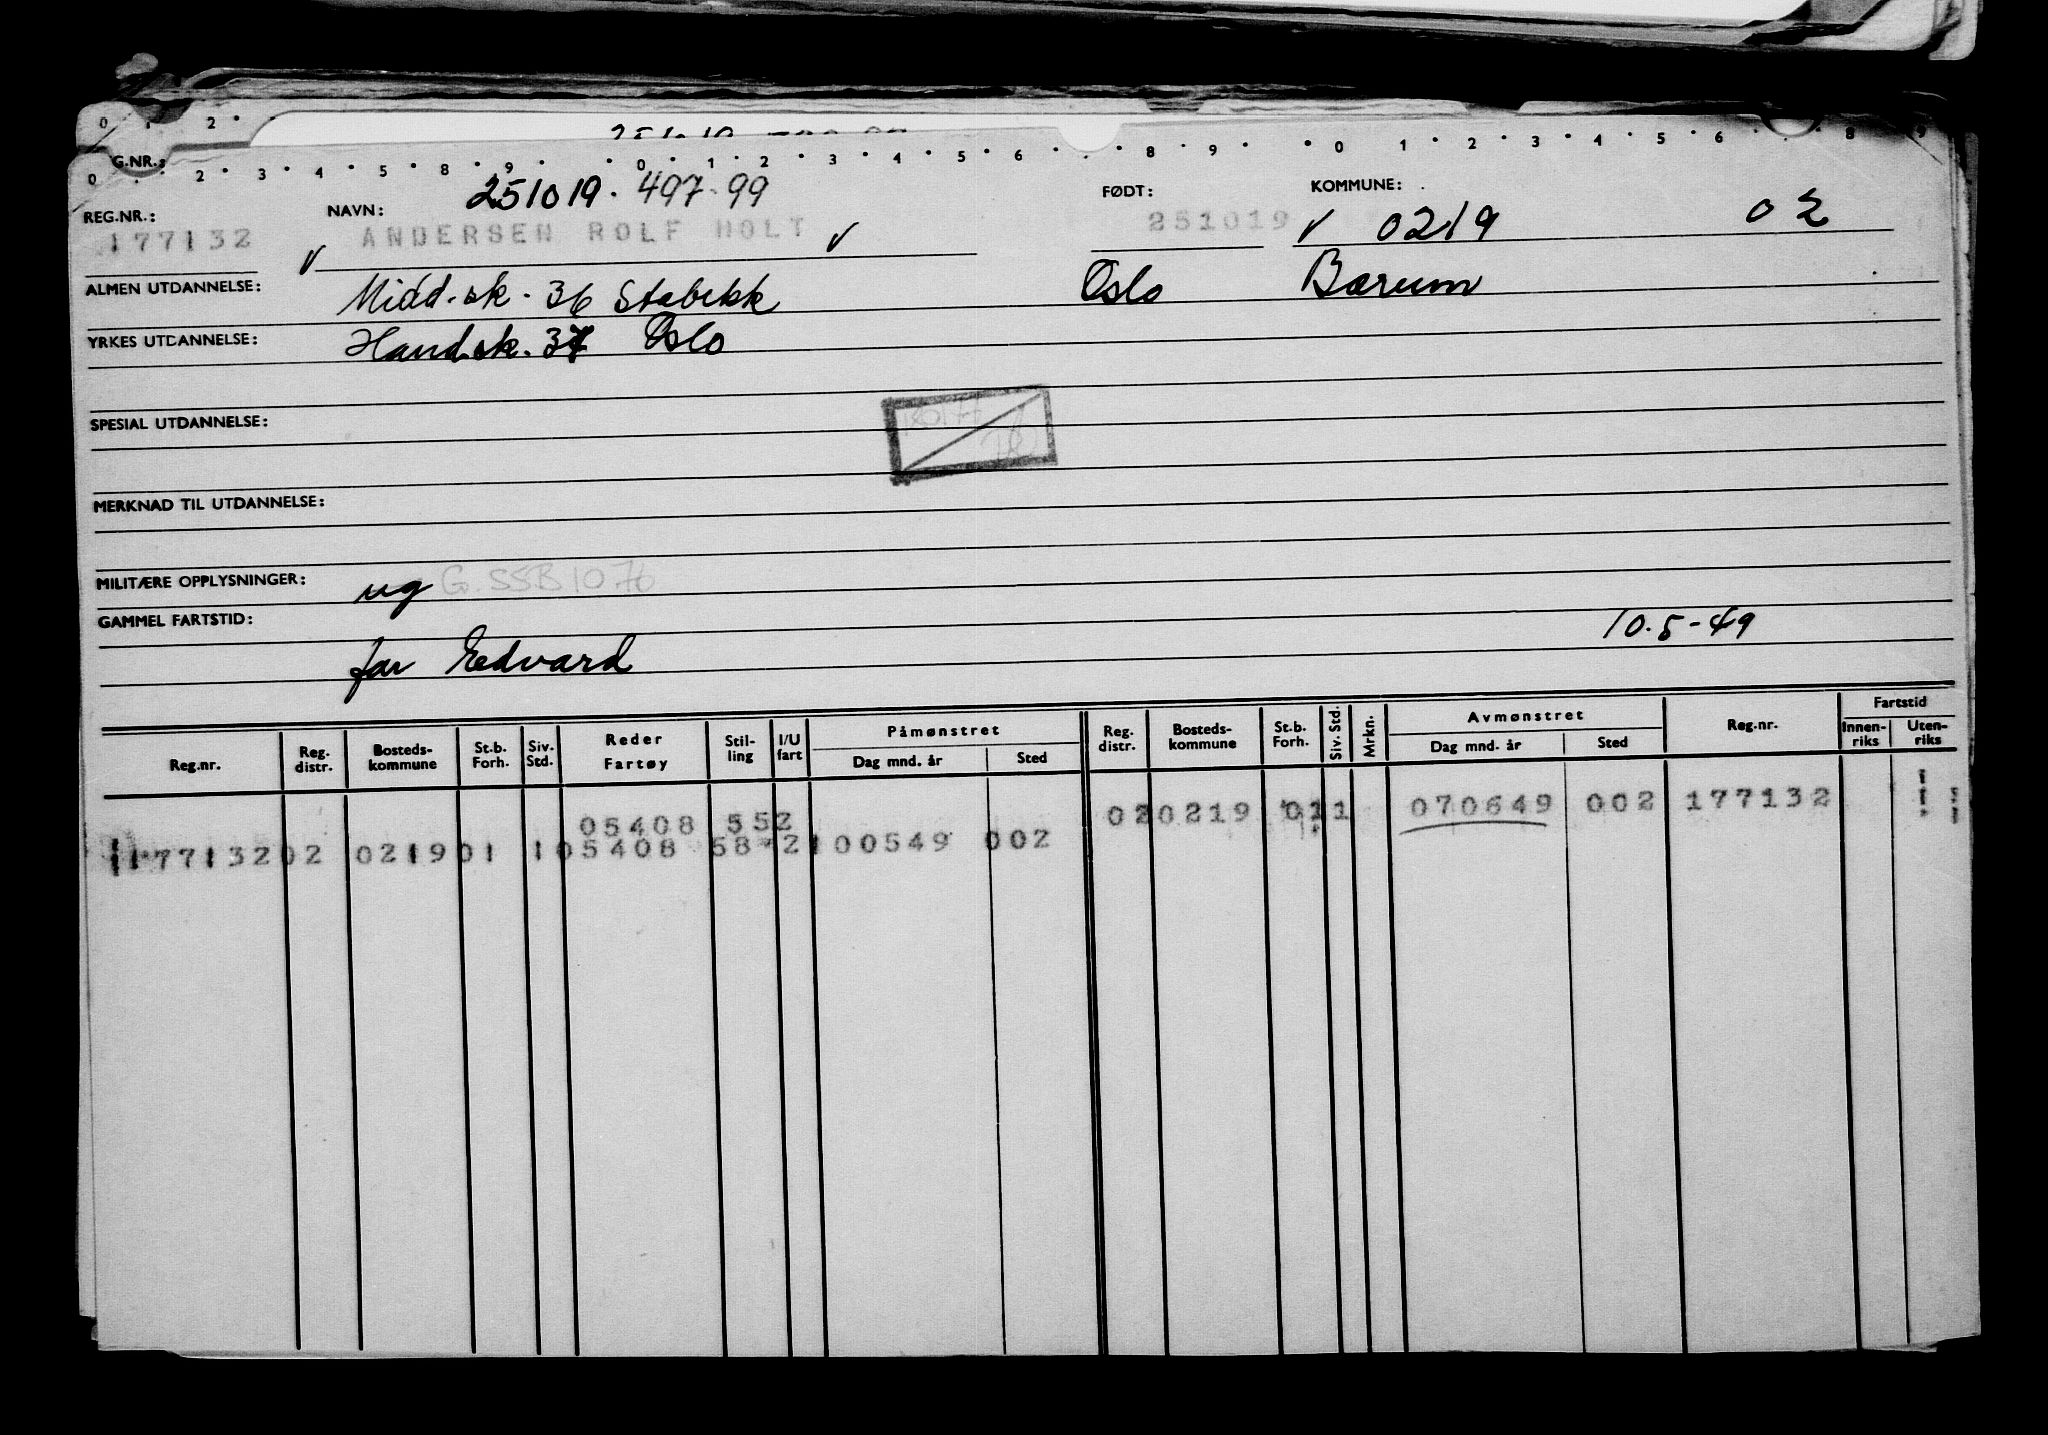 0 1 2
251019
G.NR.:
0 2 3 4 5 8 9 0 1 2 3 4 5 6 8 9 0 1 2 3 4 5 6 8 9
251019. 497.99
REG.NR.: NAVN: FØDT: KOMMUNE:
177132 √ ANDERSEN ROLF HOLT √ 251019 √ 0219 02
ALMEN UTDANNELSE: Midd.sk. 36 Stabekk Oslo Bærum
YRKES UTDANNELSE: Hand.sk. 37 Oslo
SPESIAL UTDANNELSE:
MERKNAD TIL UTDANNELSE:
MILITÆRE OPPLYSNINGER: ug G. SSB 10.76
GAMMEL FARTSTID: 10.5-49
far Edvard
Reg.nr. Reg. distr. Bosteds- kommune St.b. Forh. Siv. Std. Reder Fartøy Stil- ling I/U fart Påmønstret Dag mnd. år Sted Reg. distr. Bosteds- kommune St.b. Forh. Siv. Std. Mrkn. Avmønstret Dag mnd. år Sted Reg.nr. Fartstid Innen- riks Uten- riks
05408 552 02 0219 01 1 070649 002 177132
177132 02 0219 01 1 05408 58 2 100549 002